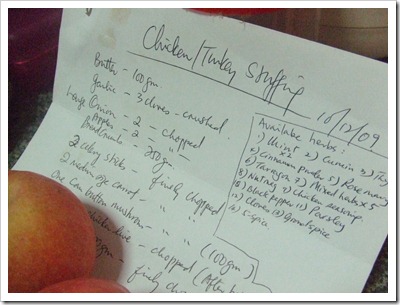 Chicken/Turkey Stuffing
10/12/09
Butter - 100gm.
garlic - 3 cloves - crushed.
large Onion - 2 - chopped
Apples - 2 - "
Breadcrumb - 250gm
2 celery sticks - finely chopped
2 medium size carrot - " "
One can button mushroom - " " (100gm)
chicken live - chopped (After
gm - finely
Available herbs:
1) Mint x2 2) Cumin 3) Thy
4) Cinnamon powder 5) Rosemary
6) Tarragon 7) Mixed herbs x 5
8) Nutmeg 9) Chicken seasoning
10) Black pepper 11) Parsley
12) Cloves 13) Ground spice
14) 5-spice